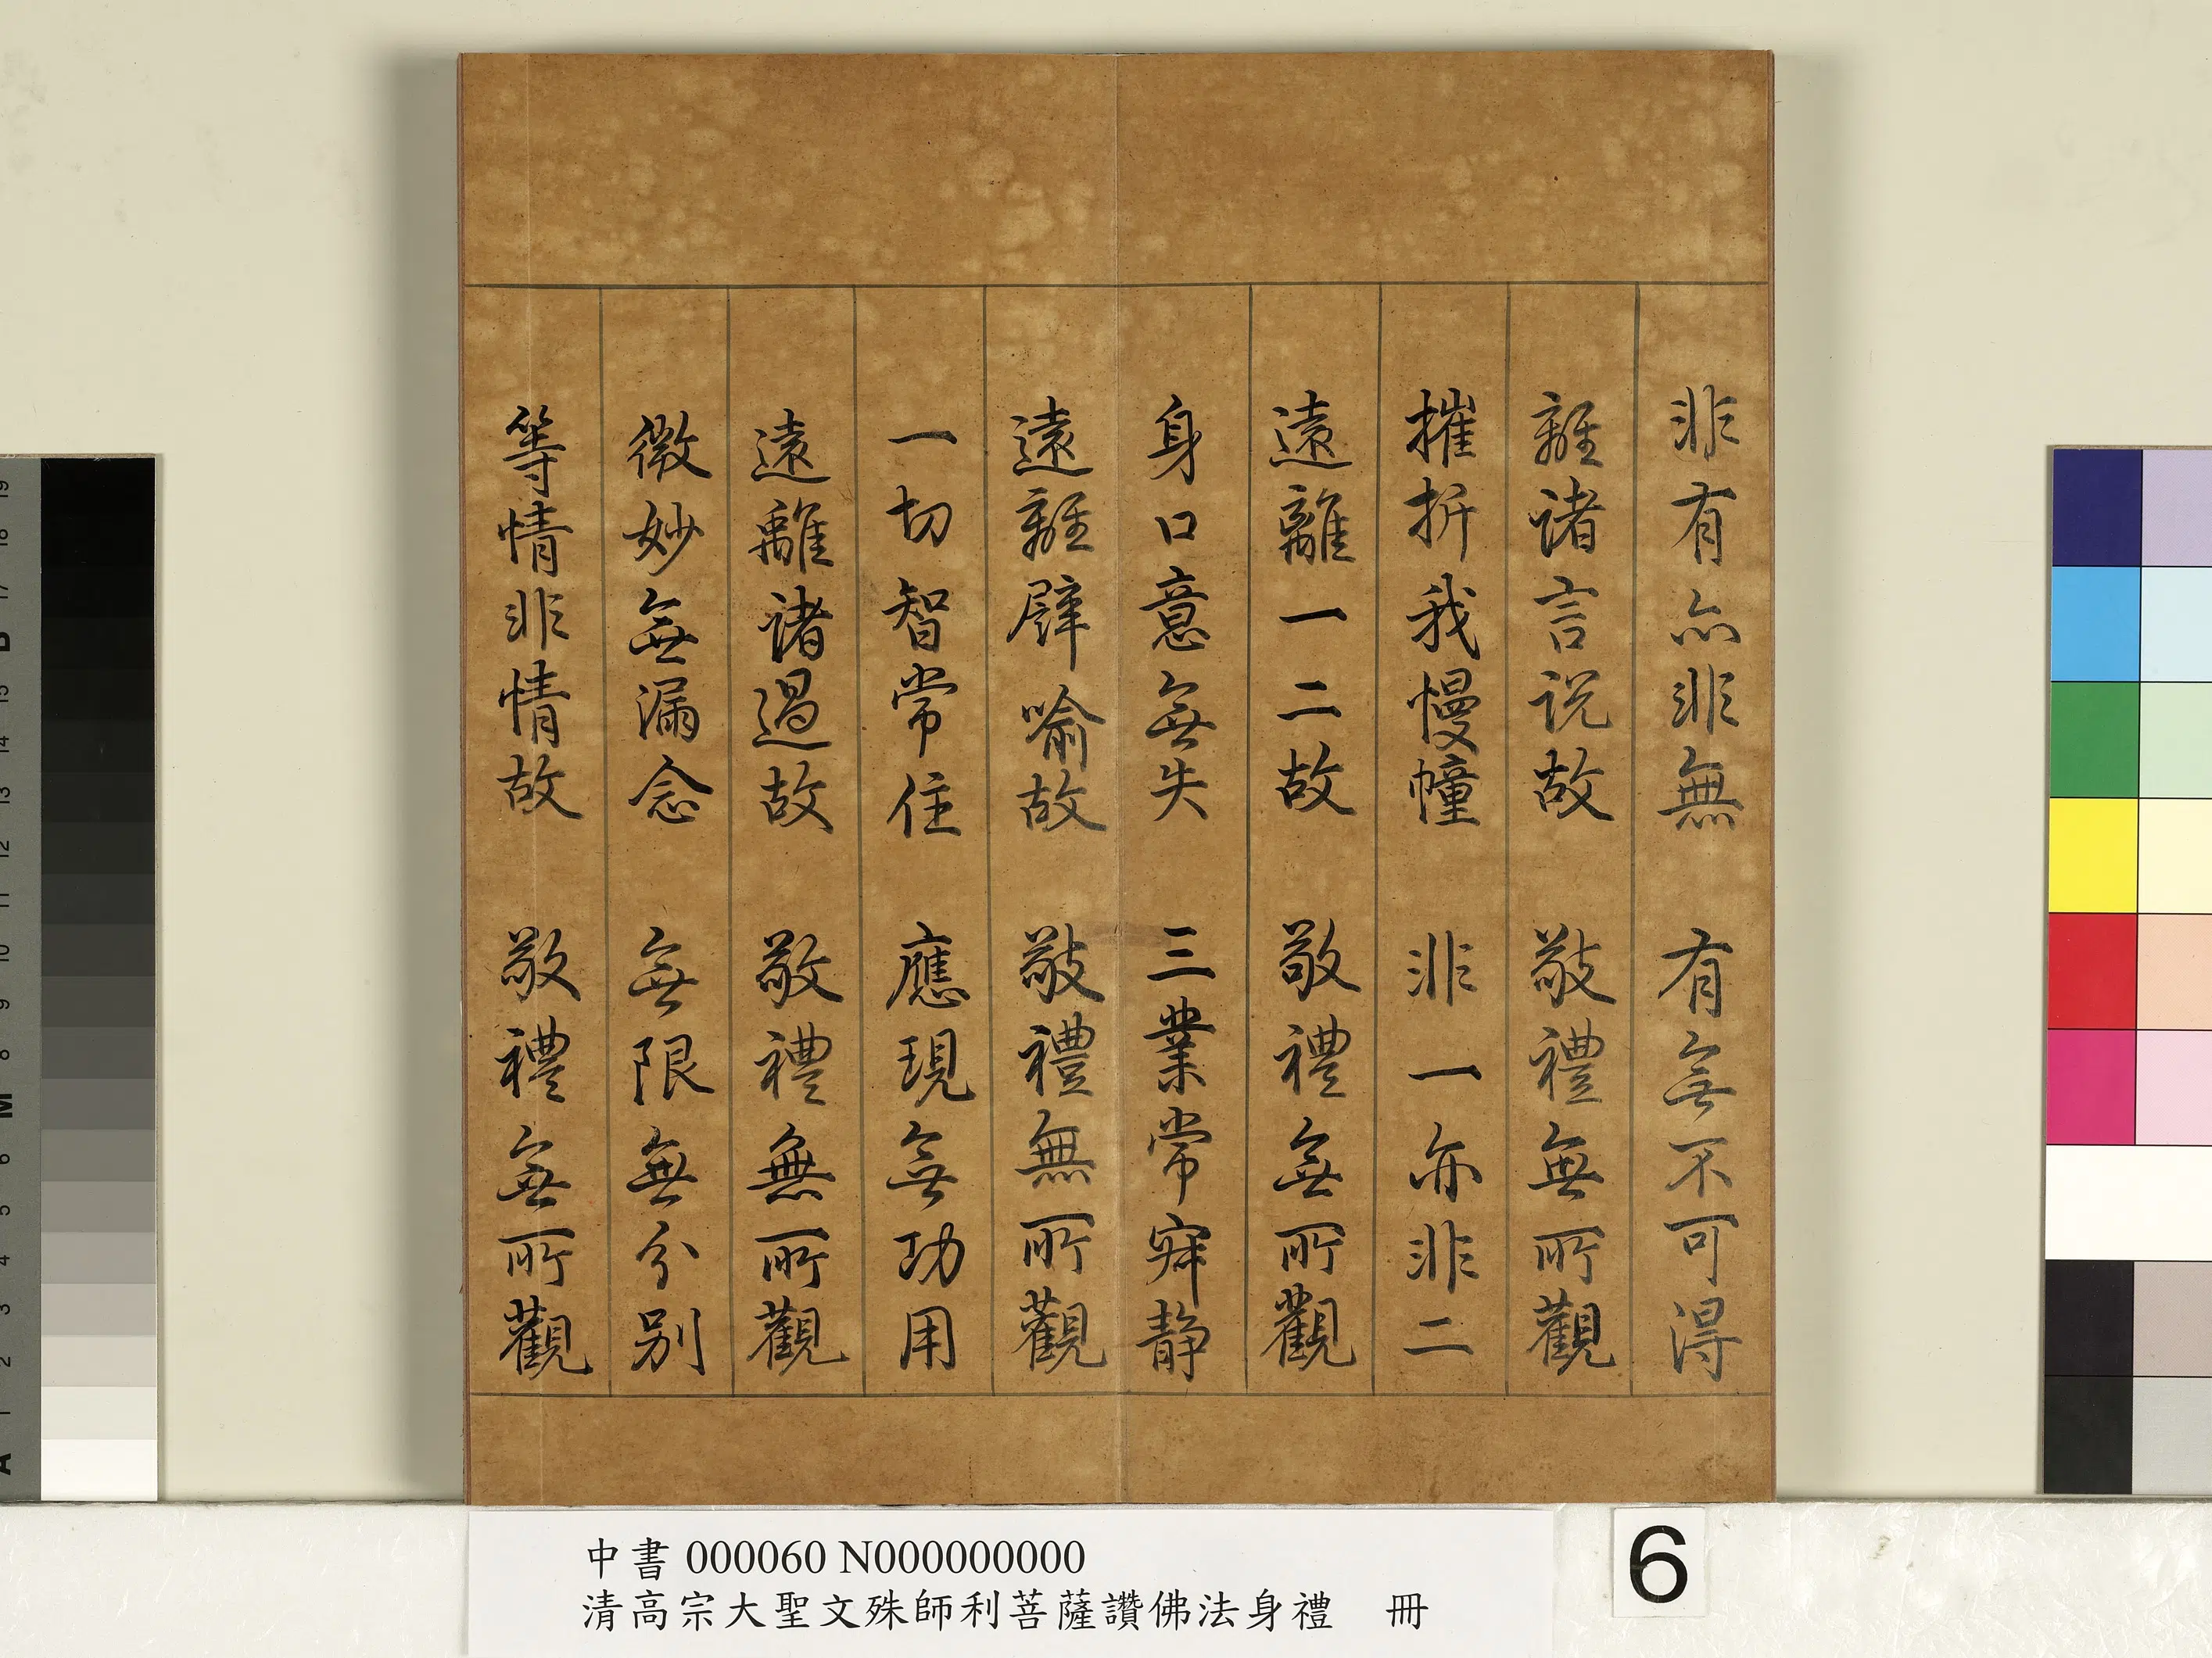 非有亦非無　有無不可得
離諸言説故　敬禮無所觀
摧折我慢幢　非一亦非二
遠離一二故　敬禮無所觀
身口意無失　三業常寂静
遠離譬喻故　敬禮無所觀
一切智常住　應現無功用
遠離諸過故　敬禮無所觀
微妙無漏念　無限無分别
等情非情故　敬禮無所觀
中書 000060 N000000000
清高宗大聖文殊師利菩薩讚佛法身禮　冊
6
19
18
17
B
15
14
13
12
11
10
9
8
M
6
5
4
3
2
1
A